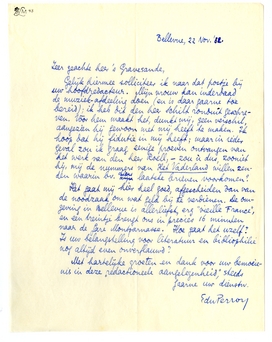 Bellevue, 22 Nov. '32
Zeer geachte heer 's Gravesande,
Gelijk hiermee solliciteer ik naar dat postje bij
uw hoofdredacteur. Mijn vrouw kan inderdaad
de muziek-afdeeling doen (en is daar gaarne toe
bereid); ik heb dit den heer Schilt ronduit geschre-
ven. Voor hem maakt het, dunkt mij, geen verschil,
aangezien hij gewoon met mij heeft te maken. Ik
hoop dat hij fiducie in mij heeft; maar in ieder
geval zou ik graag eenige proeven ontvangen van
het werk van den heer Kool - zou u dus, zoo
mij de nummers van Het Vaderland willen zen-
den waarin bv. laatste brieven voorkomen?
Het gaat mij hier heel goed, afgescheiden van
de noodzaak om wat geld bij te verdienen; de om-
geving in Bellevue is allerliefst, erg "vieille France",
en een treintje brengt ons in precies 16 minuten
naar de Gare Montparnasse. Hoe gaat het uzelf?
Is uw belangstelling voor literatuur en bibliophilie
nog altijd even onverflauwd?
Met hartelijke groeten en dank voor uw
in deze redactioneele aangelegenheid, steeds
gaarne uw dienstw.
EduPerron